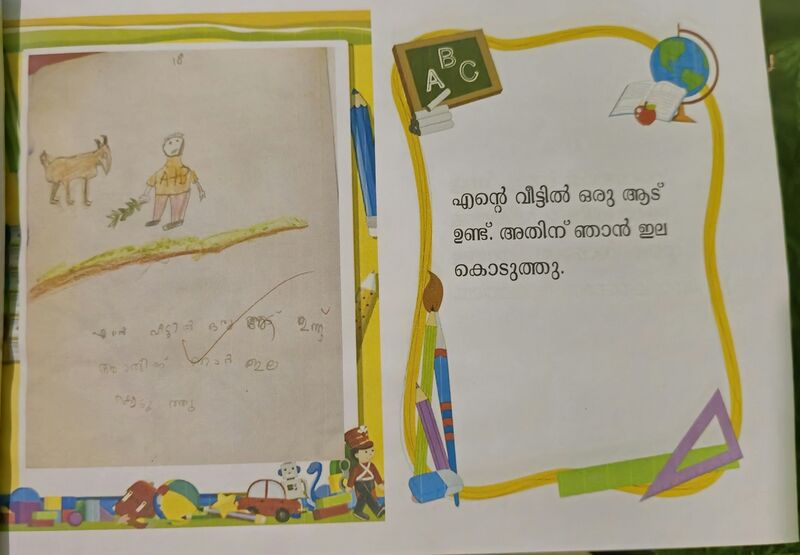 18
A+B
എന്റെ വീട്ടിൽ ഒരു ആട് ഉണ്ട്
അതിന് ഞാൻ ഇല
കൊടു ത്തു
ABC
എന്റെ വീട്ടിൽ ഒരു ആട്
ഉണ്ട്. അതിന് ഞാൻ ഇല
കൊടുത്തു.